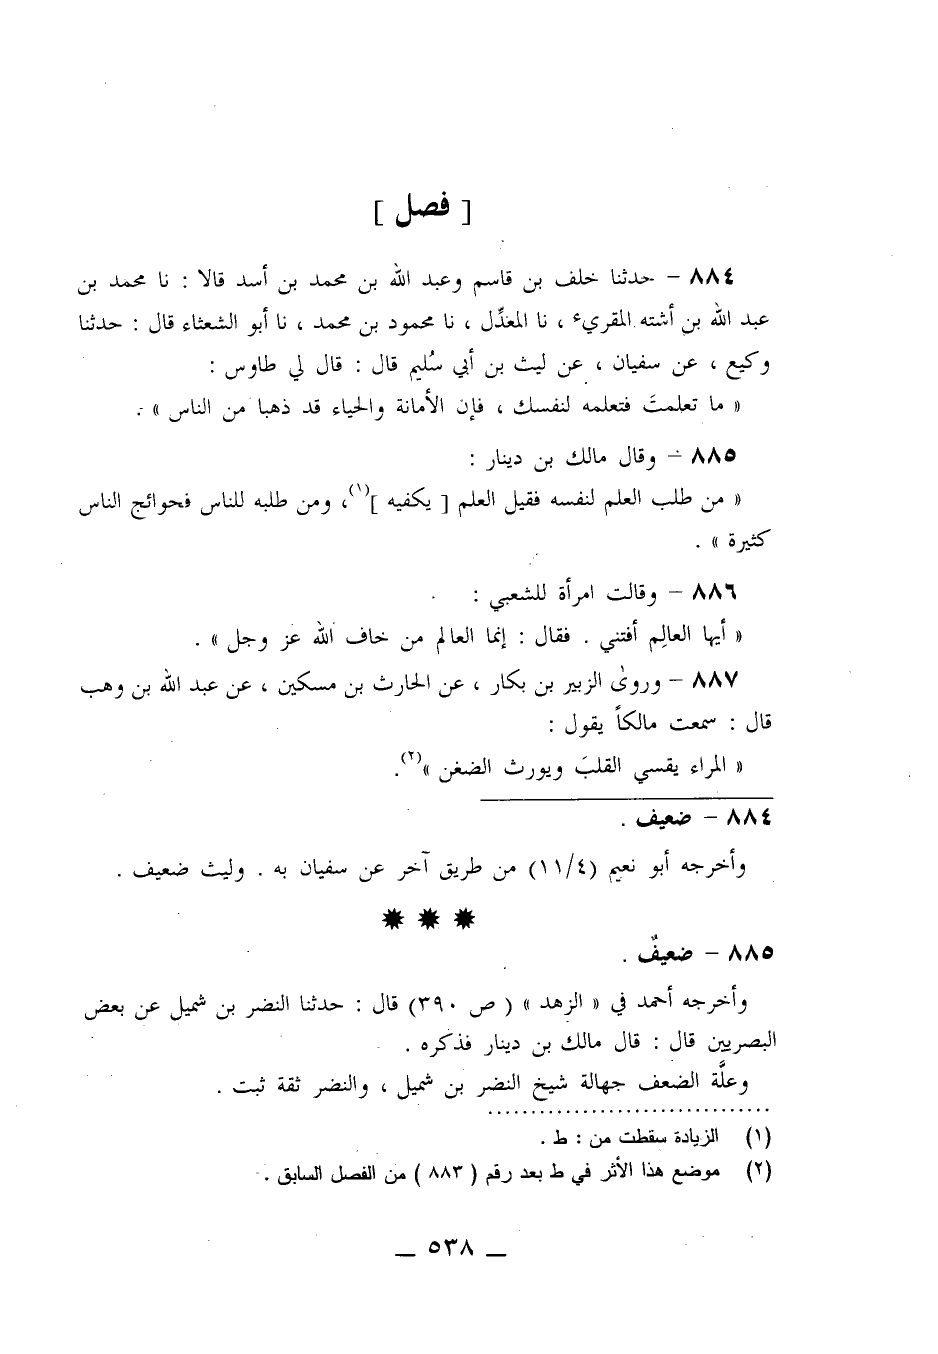 [ فصل ]
٨٨٤ - حدثنا خلف بن قاسم وعبد الله بن محمد بن أسد قالا : نا محمد بن
عبد الله بن أشته المقريء ، نا المعدِّل ، نا محمود بن محمد ، نا أبو الشعثاء قال : حدثنا
وكيع ، عن سفيان ، عن ليث بن أبي سُليم قال : قال لي طاوس :
« ما تعلمتَ فتعلمه لنفسك ، فإن الأمانة والحياء قد ذهبا من الناس » .
٨٨٥ - وقال مالك بن دينار :
« من طلب العلم لنفسه فقيل العلم [ يكفيه ](١)، ومن طلبه للناس فحوائج الناس
كثيرة » .
٨٨٦ - وقالت امرأة للشعبي :
« أيها العالِم أفتني . فقال : إنما العالم من خاف الله عز وجل » .
٨٨٧ - وروىٰ الزبير بن بكار ، عن الحارث بن مسكين ، عن عبد الله بن وهب
قال : سمعت مالكاً يقول :
« المراء يقسي القلبَ ويورث الضغن »(٢).
٨٨٤ - ضعيف .
وأخرجه أبو نعيم (١١/٤) من طريق آخر عن سفيان به . وليث ضعيف .
٨٨٥ - ضعيفٌ .
وأخرجه أحمد في « الزهد » ( ص ٣٩٠) قال : حدثنا النضر بن شميل عن بعض
البصريين قال : قال مالك بن دينار فذكره .
وعلَّة الضعف جهالة شيخ النضر بن شميل ، والنضر ثقة ثبت .
(١) الزيادة سقطت من : ط .
(٢) موضع هذا الأثر في ط بعد رقم ( ٨٨٣ ) من الفصل السابق .
_ ٥٣٨ _